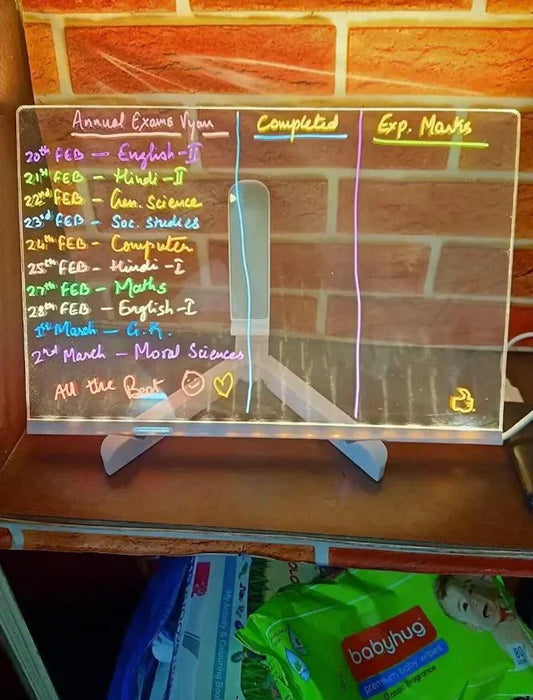 Annual Exams Vyan
Completed
Exp. Marks
20th FEB - English-II
21st FEB - Hindi-II
22nd FEB - Gen. Science
23rd FEB - Soc. studies
24th FEB - Computer
25th FEB - Hindi-I
27th FEB - Maths
28th FEB - English-I
1st March - G.K.
2nd March - Moral Sciences
All the Best
babyhug
premium baby wipes
fragrance
80
My Activity & Colouring Book